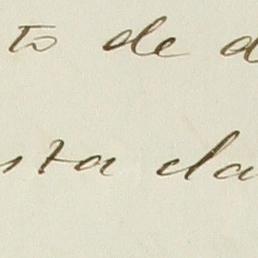 to de d
sta cla